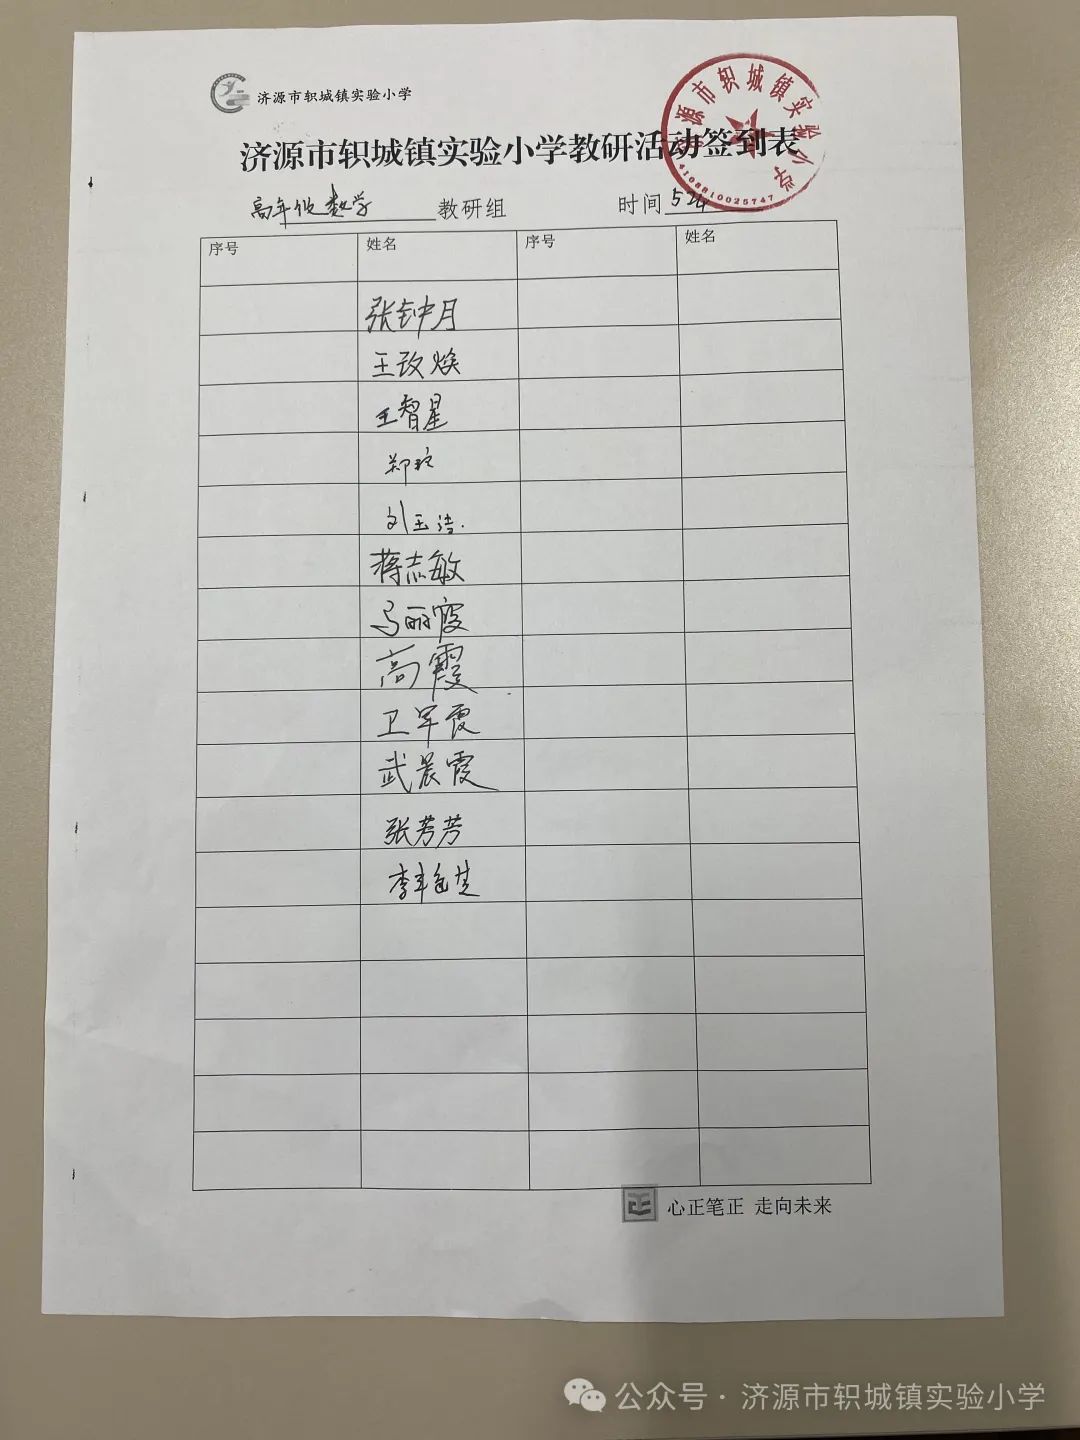 济源市轵城镇实验小学
济源市轵城镇实验小学
济源市轵城镇实验小学教研活动签到表
4108810025747
高年级数学 教研组 时间 5.24
序号 姓名 序号 姓名
张钟月
王改焕
王智星
郑
刘玉洁.
蒋志敏
马丽霞
高霞
卫军霞
武晨霞
张芳芳
李
心正笔正 走向未来
公众号·济源市轵城镇实验小学